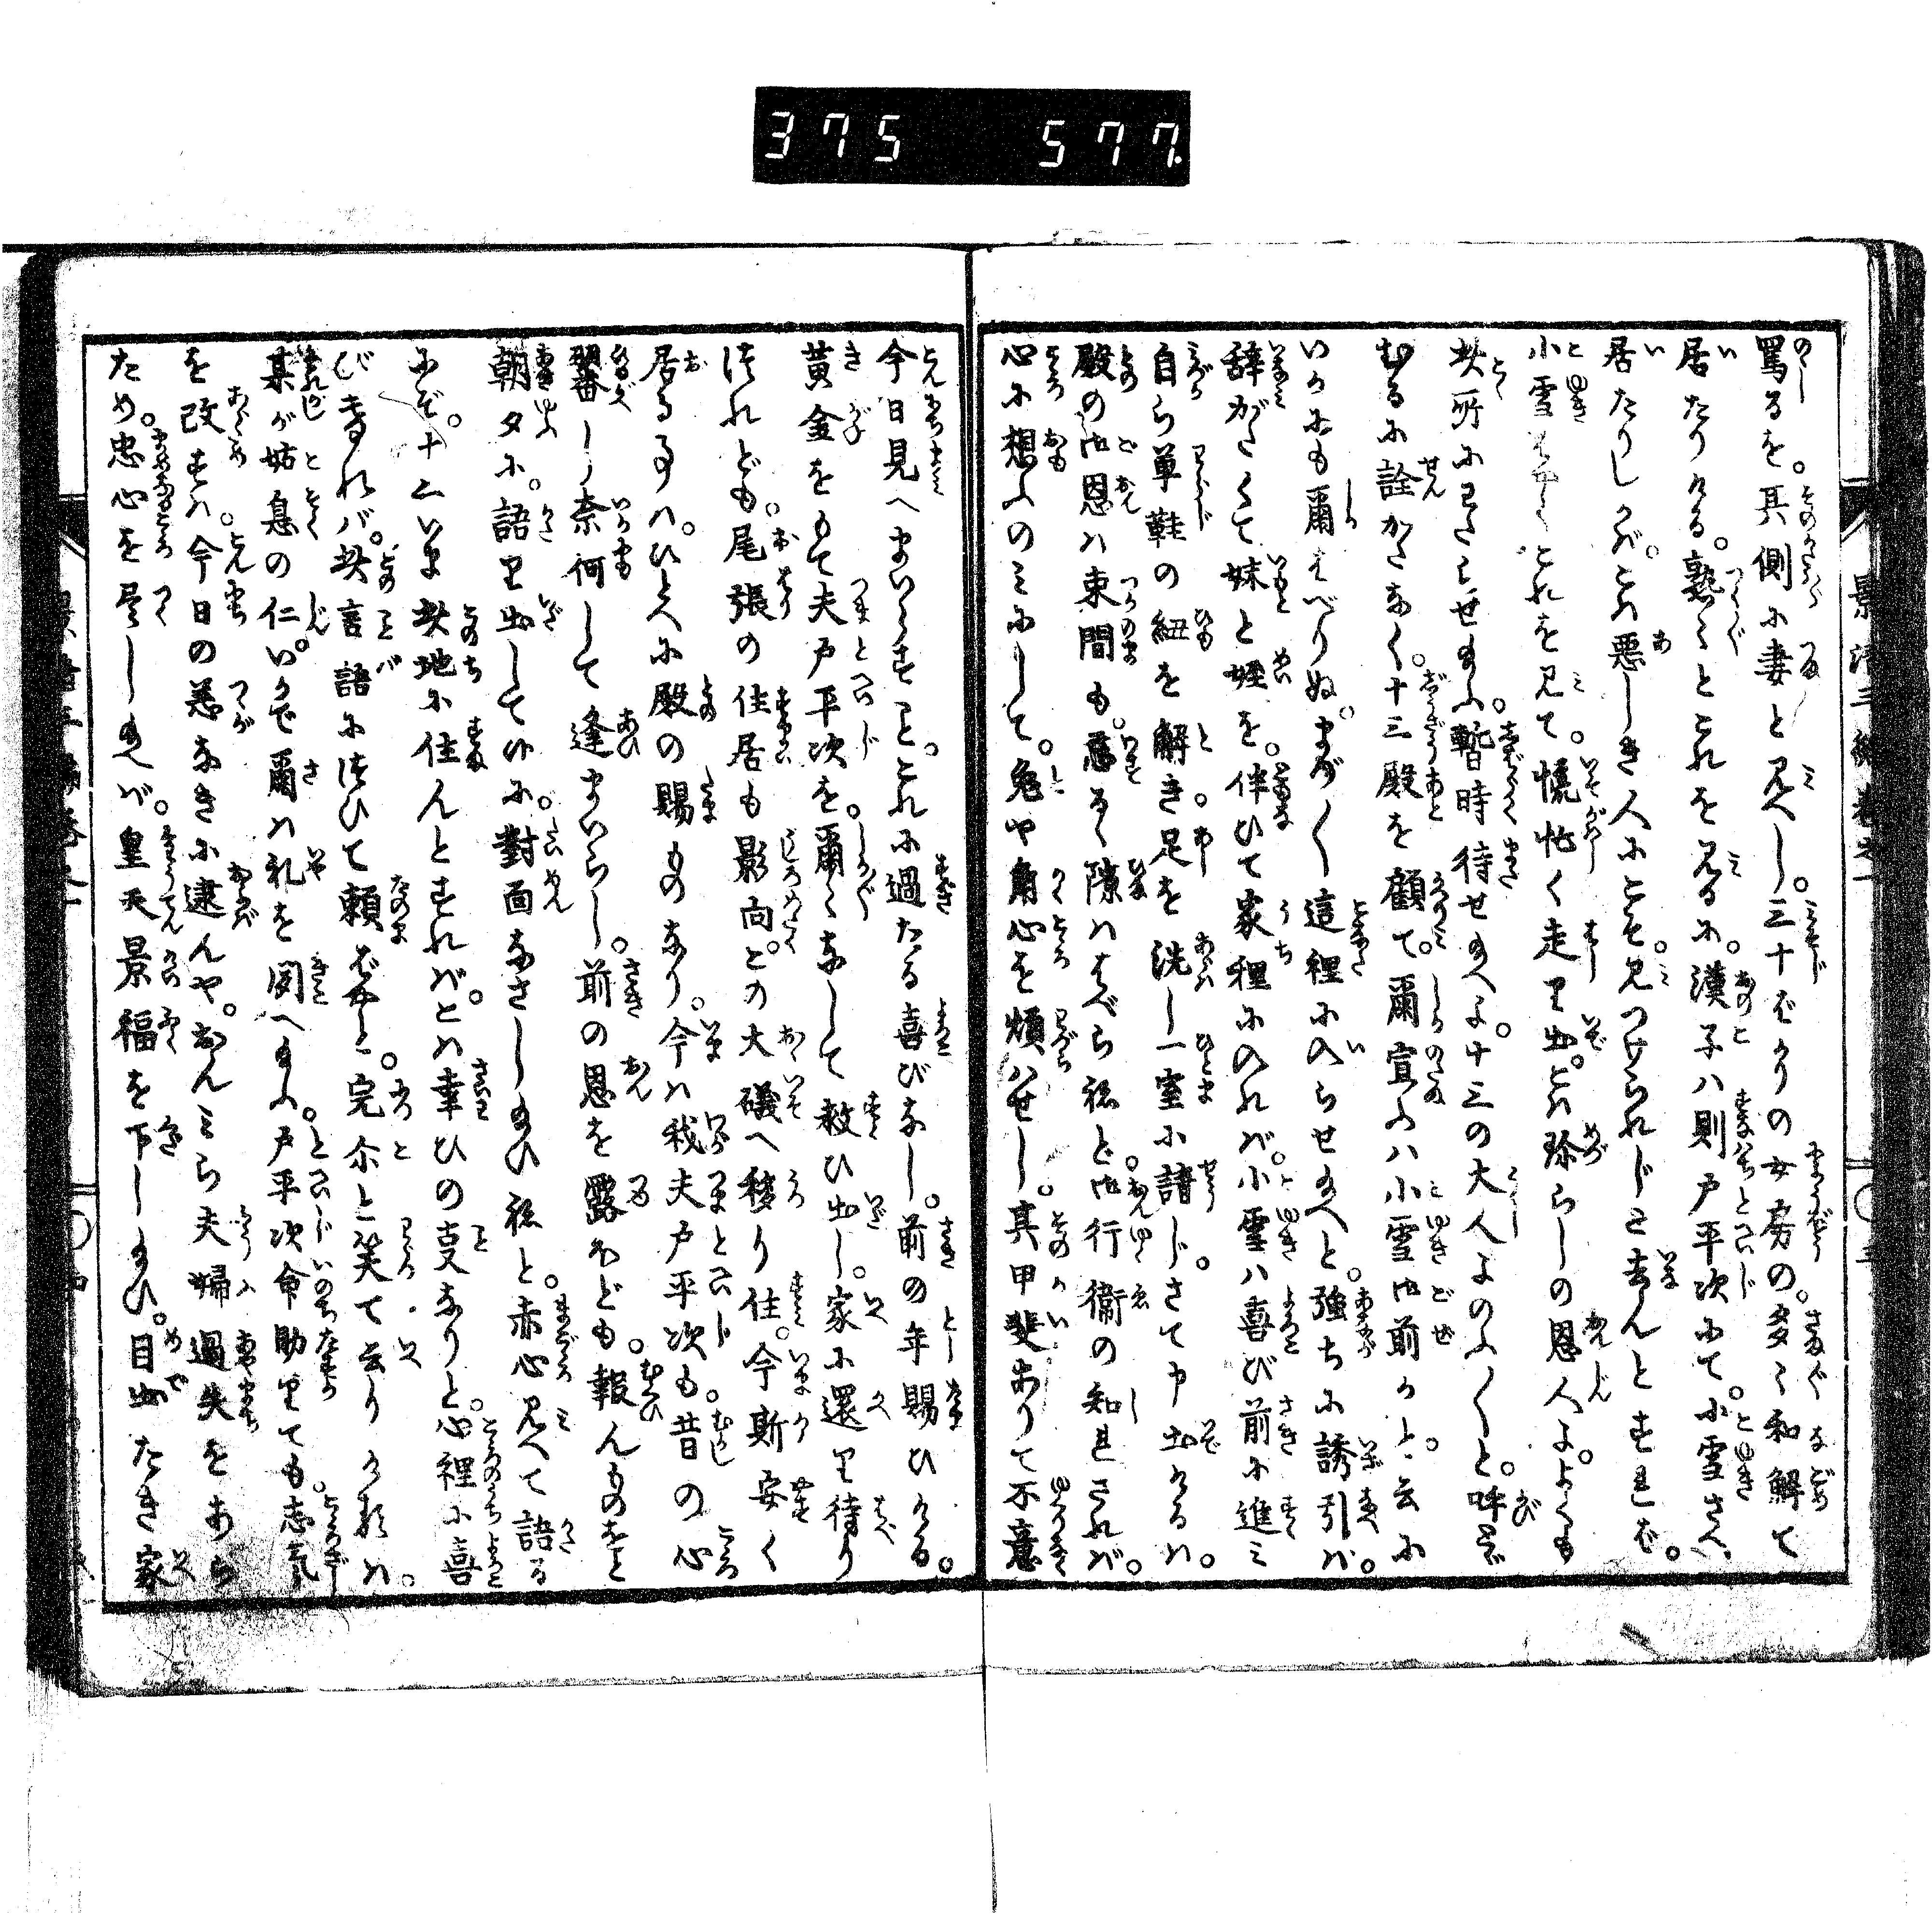 375 577
罵るを。其側に妻と見へし。三十ばかりの女房の。多々和解て
居たりける。熟々とこれを見るに。漢子ハ則戸平次にて。小雪さへ
居たりしが。こハ悪しき人にこそ。見つけられじと去んとすれば。
小雪はやくこれを見て。慌忙く走り出。こハ珍らしの恩人よ。よくも
此所にわたらせ給ふ。暫時待せ給へよ。十三の大人よのふ〳〵と。呼る
むるに詮かたなく。十三殿を顧て。爾宣ふハ小雪御前かと。云に
いかにも爾はべりぬ。まづ〳〵這裡に入らせ給へと。強ちに誘引バ。
辞がたくて妹と姪を。伴ひて家裡に入れバ。小雪ハ喜び前に進ミ
自ら草鞋の紐を解き。足を洗し一室に請じ。さて申出けるハ。
殿の御恩ハ束間も。忘るゝ隙ハはべらねど。御行衛の知れざれバ。
心に想ふのミにして。兎や角心を煩ハせし。其甲斐ありて不意
今日見へまいらすこと。これに過たる喜びなし。前の年賜ひける。
黄金をもて夫戸平次を。爾々なして救ひ出し。家に還り待り
つれども。尾張の住居も影向。この大磯へ移り住。今斯安く
居る事ハ。ひとへに殿の賜ものなり。今ハ我夫戸平次も。昔の心
翻へし。奈何して逢まいらし。前の恩を露ほども。報んものをと
朝夕に。語り出して候に。對面なさしめ給ひねと。赤心見へて語る
にぞ。十三いま此地に住んとすれば。こハ幸ひの事なりと。心裡に喜
びけれバ。此言語につひて頼ばやと。完尓と笑て云りけるハ。
某が姑息の仁。いかで爾ハ礼を聞へ給ふ。戸平次命助りても。志気
を改すハ今日の恙なきに逮んや。おんミら夫婦過失をあら
ため。忠心を尽し給へバ。皇天景福を下し給ひ。目出たき家